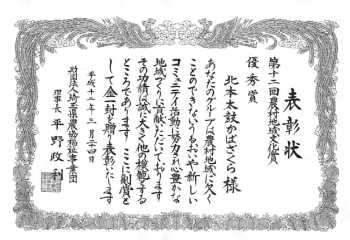 表彰状
第十二回農村地域文化賞
優秀賞
北本太鼓かばざくら様
あなたのグループは農村地域に欠く
ことのできないうるおいや新しい
コミュニティ活動に努力され心豊かな
地域づくりに貢献いただいております
その功績は誠に大きく他の模範とする
ところであります ここに副賞と
して金一封を贈り表彰いたします
平成十二年三月二四日
財団法人埼玉県農協福祉事業団
理事長 平野政利